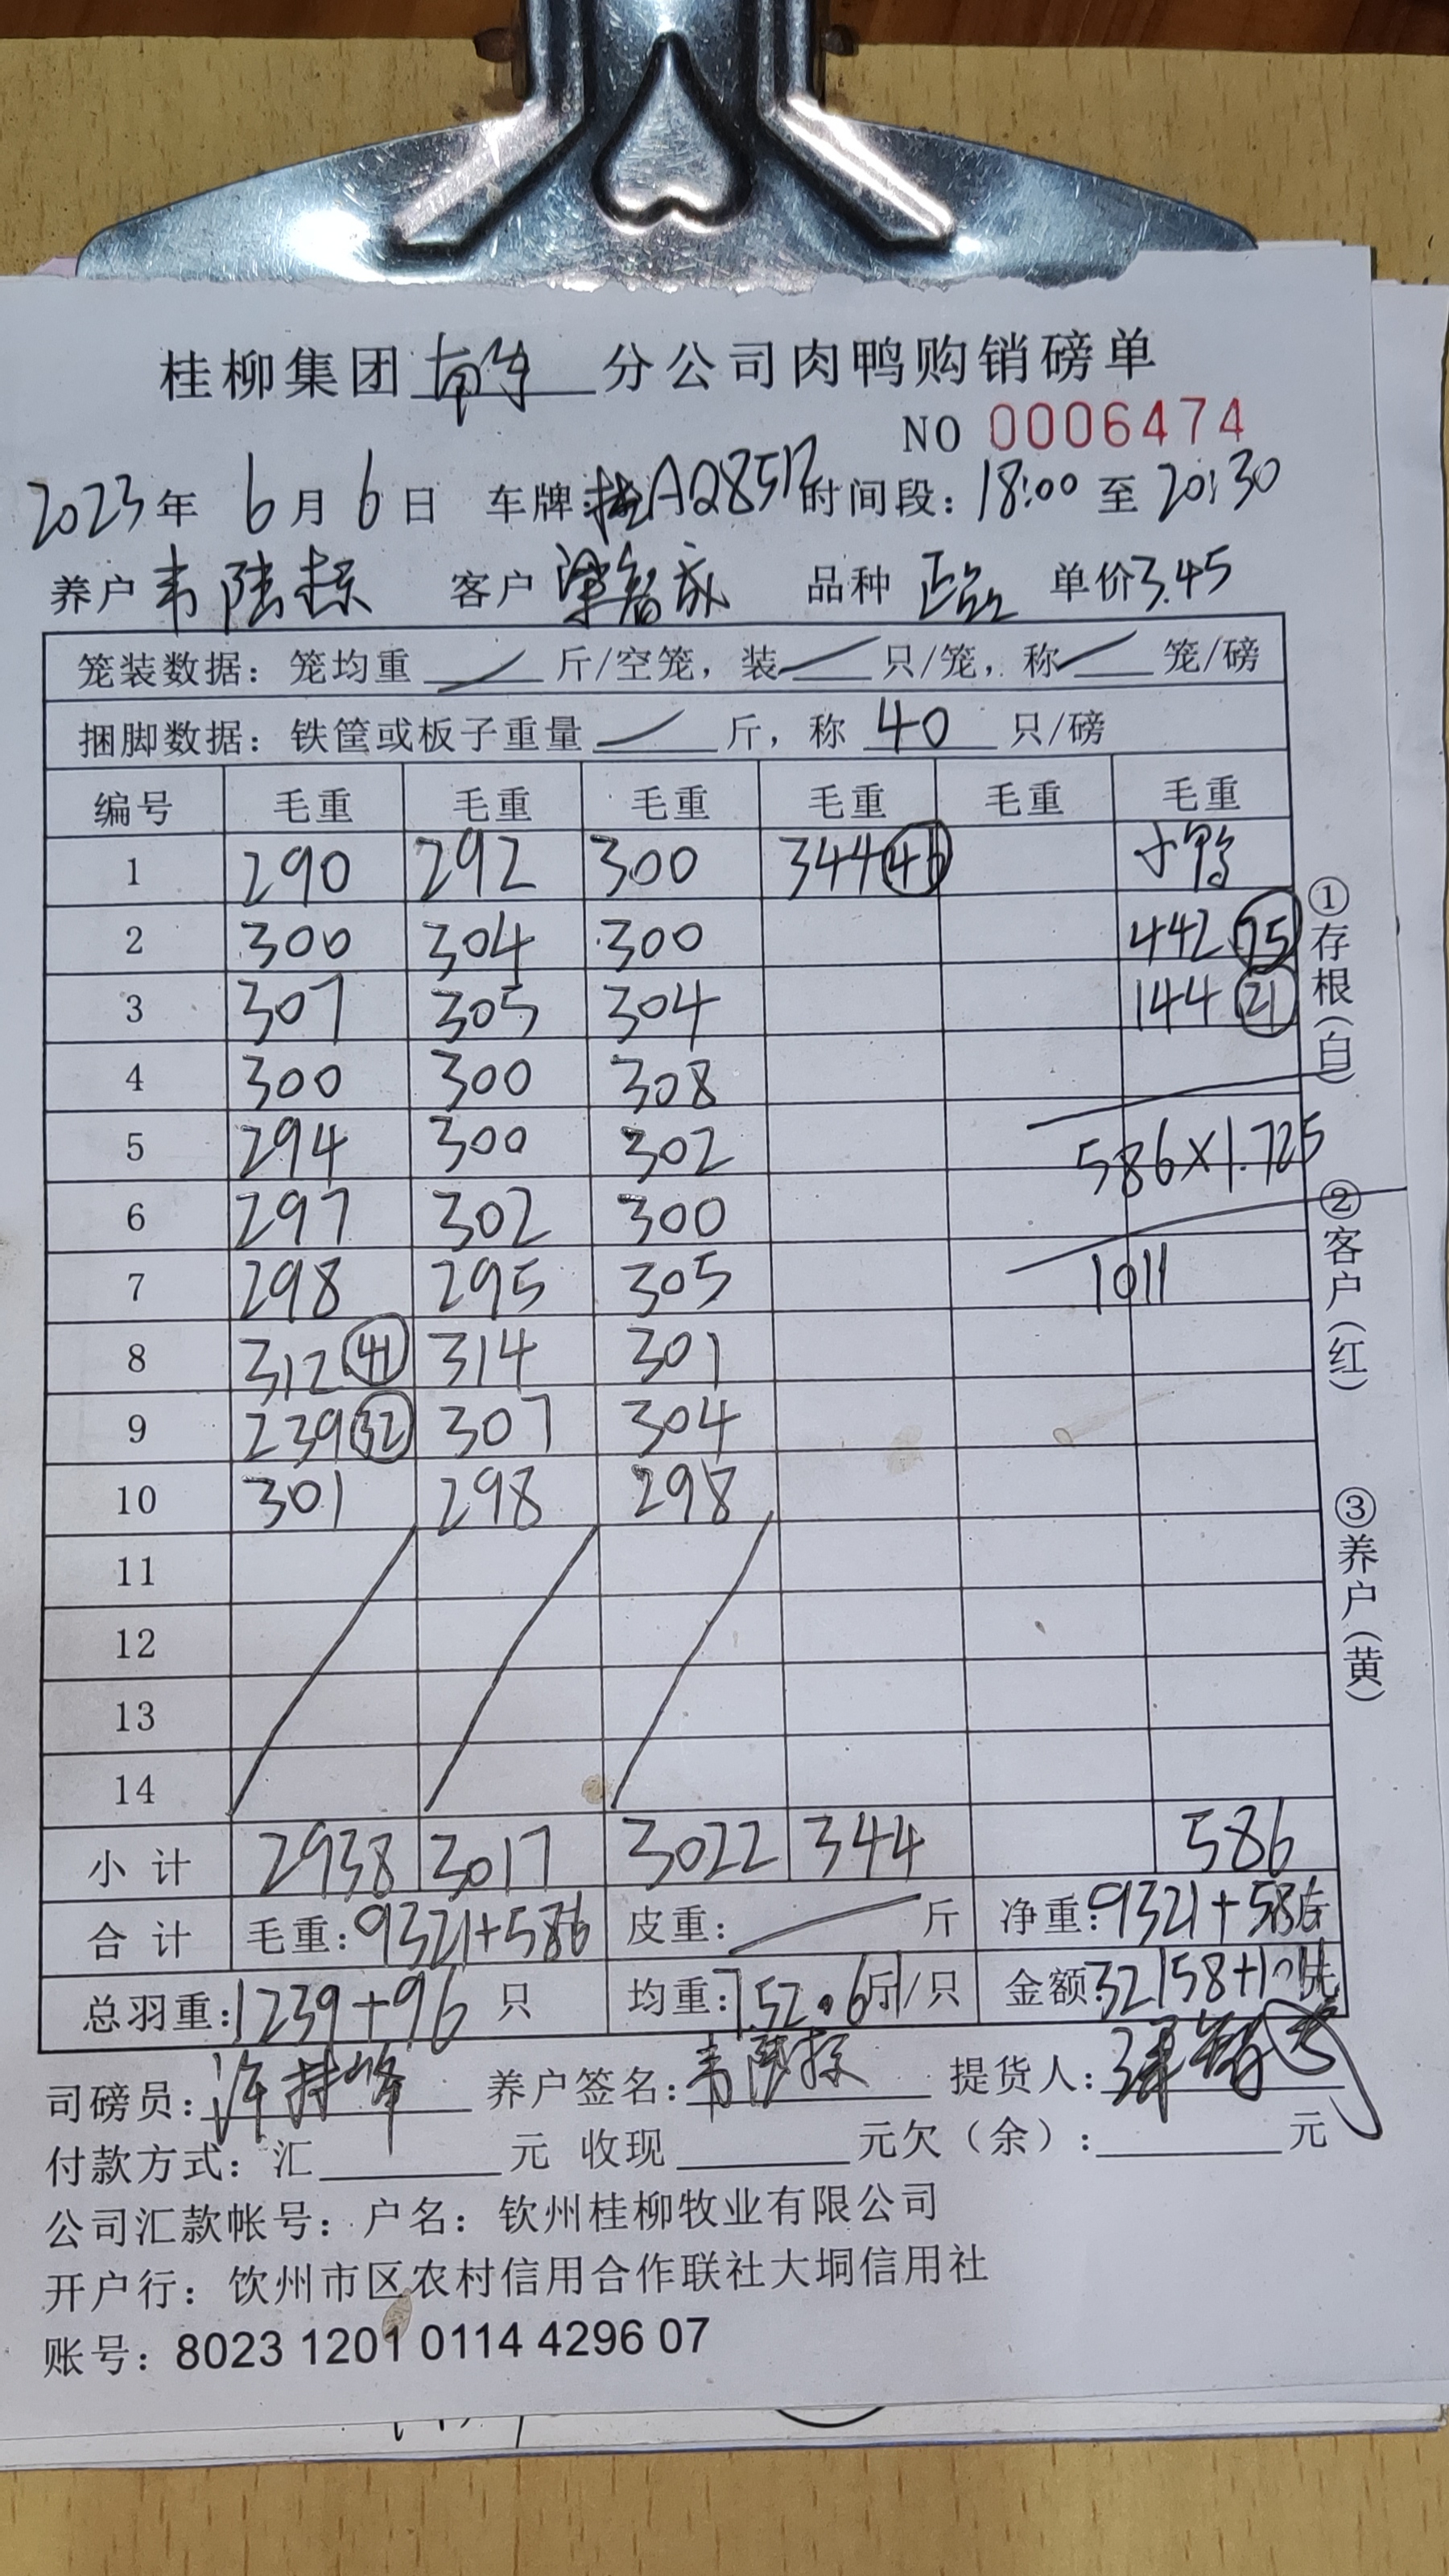 桂柳集团 南宁 分公司肉鸭购销磅单
NO 0006474
2023年 6月6日 车牌:桂AQ85 时间段:18:00至20:30
养户 韦陆 客户 梁智成 品种 单价3.45
笼装数据:笼均重 / 斤/空笼,装 / 只/笼,称 / 笼/磅
捆脚数据:铁筐或板子重量 / 斤,称 40 只/磅
编号 毛重 毛重 毛重 毛重 毛重 毛重
1 290 292 300 344 小鸭
2 300 304 300 442 75
3 307 305 304 144 21
4 300 300 308
5 294 300 302 586×1.725
6 297 302 300
7 298 295 305 1011
8 312 41 314 301
9 239 32 307 304
10 301 298 298
11
12
13
14
小计 2938 3017 3022 344 586
合计 毛重:9321+586 皮重: / 斤 净重:9321+586斤
总羽重:1239+96 只 均重:7.52 斤/只 金额32158+1011
司磅员:许 养户签名:韦陆 提货人:梁智成
付款方式:汇 元 收现 元欠(余): 元
公司汇款帐号:户名:钦州桂柳牧业有限公司
开户行:饮州市区农村信用合作联社大垌信用社
账号:8023 1201 0114 4296 07
①存根(白)
②客户(红)
③养户(黄)